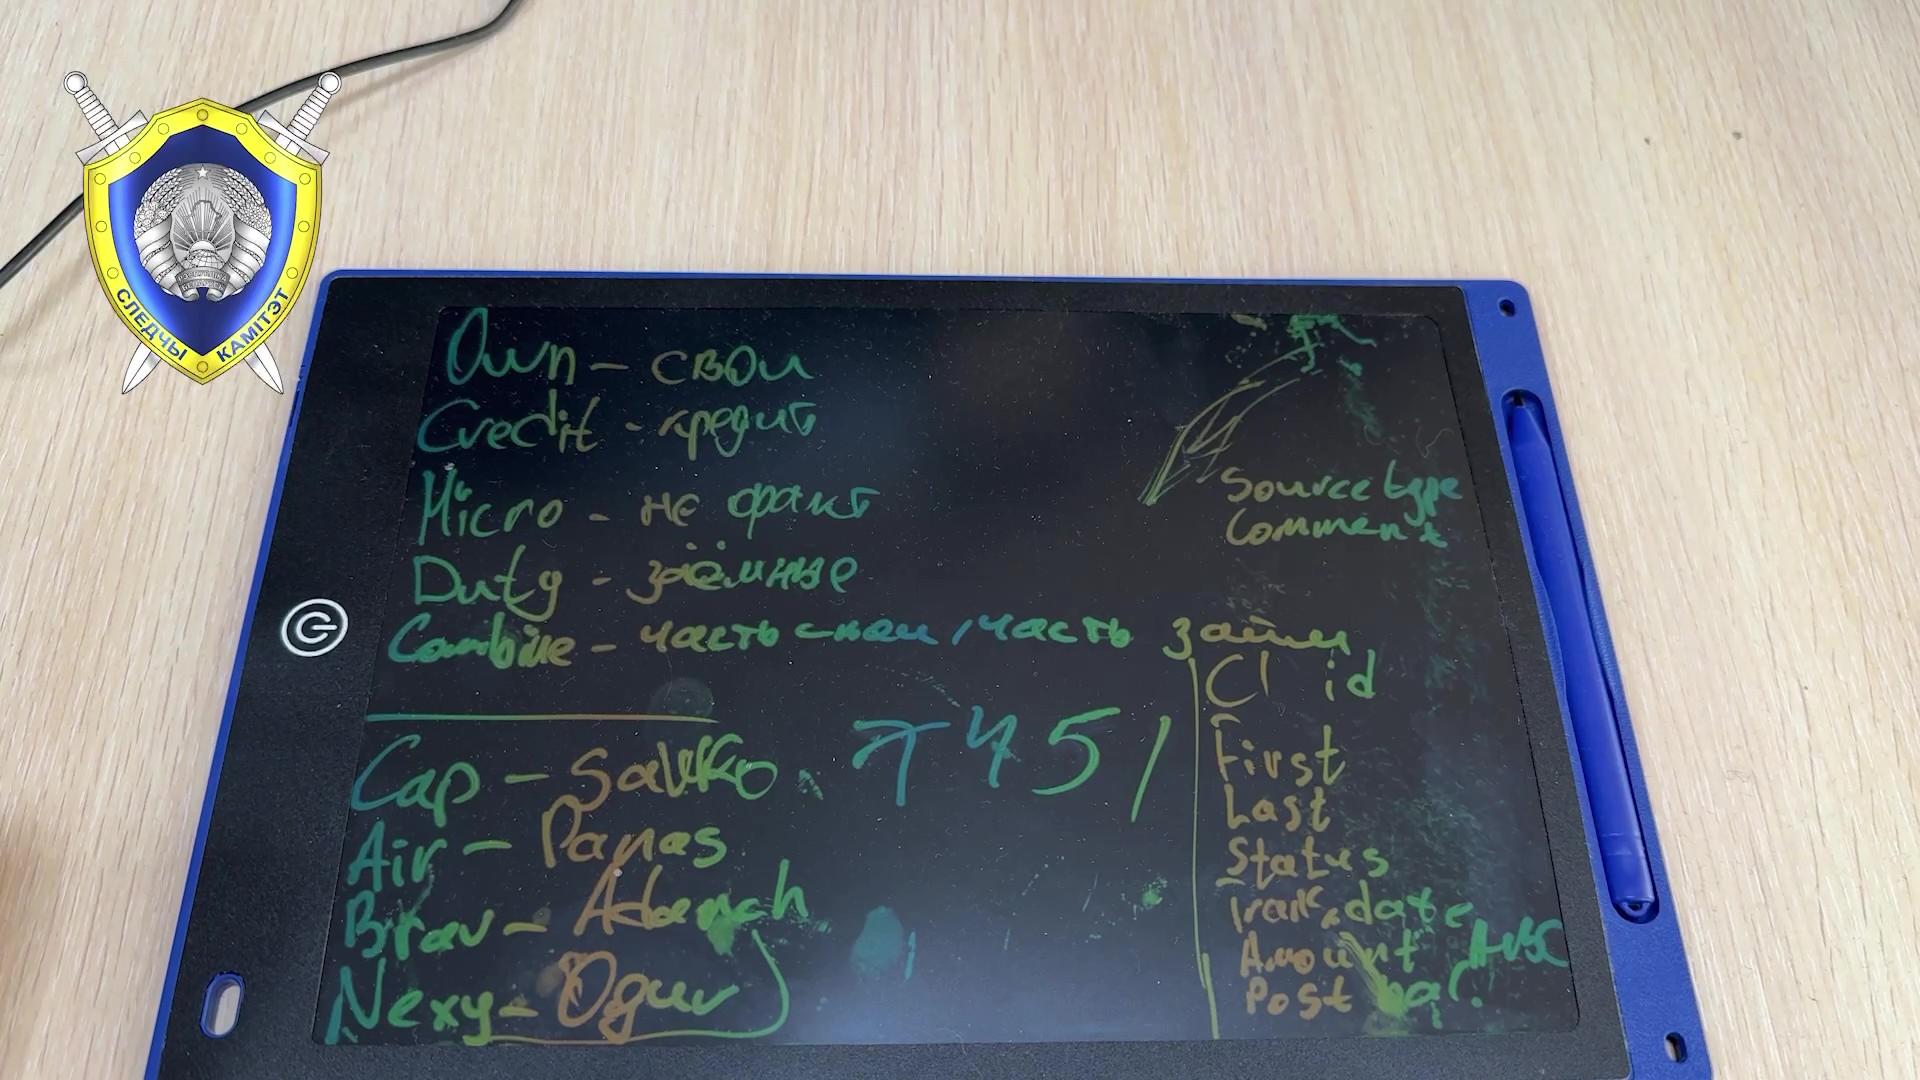 СЛЕДЧЫ КАМІТЭТ
Own - свои
Credit - кредит
Micro - не факт
Duty - заёмные
Combine - часть свои, часть займ
Source type
Comment
Cl id
First
Last
Status
date
Amount
Post
7451
Cap -
Air - Panas
Brav -
Nexy -